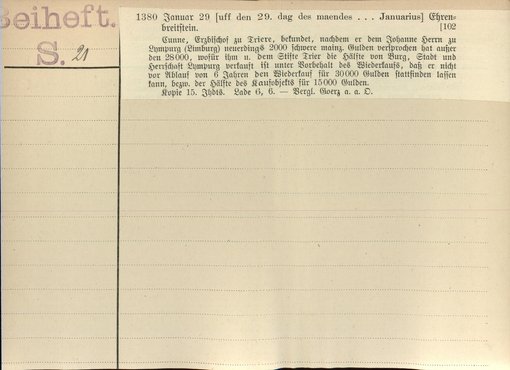 Beiheft.
S. 21
1380 Januar 29 [uff den 29. dag des maendes . . . Januarius] Ehren-
breitstein. [102
Cunne, Erzbischof zu Triere, bekundet, nachdem er dem Johanne Herrn zu
Lympurg (Limburg) neuerdings 2000 schwere mainz. Gulden versprochen hat außer
den 28000, wofür ihm u. dem Stifte Trier die Hälfte von Burg, Stadt und
Herrschaft Lympurg verkauft ist unter Vorbehalt des Wiederkaufs, daß er nicht
vor Ablauf von 6 Jahren den Wiederkauf für 30000 Gulden stattfinden lassen
kann, bezw. der Hälfte des Kaufobjekts für 15000 Gulden.
Kopie 15. Jhdts. Lade G, 6. — Vergl. Goerz a. a. O.